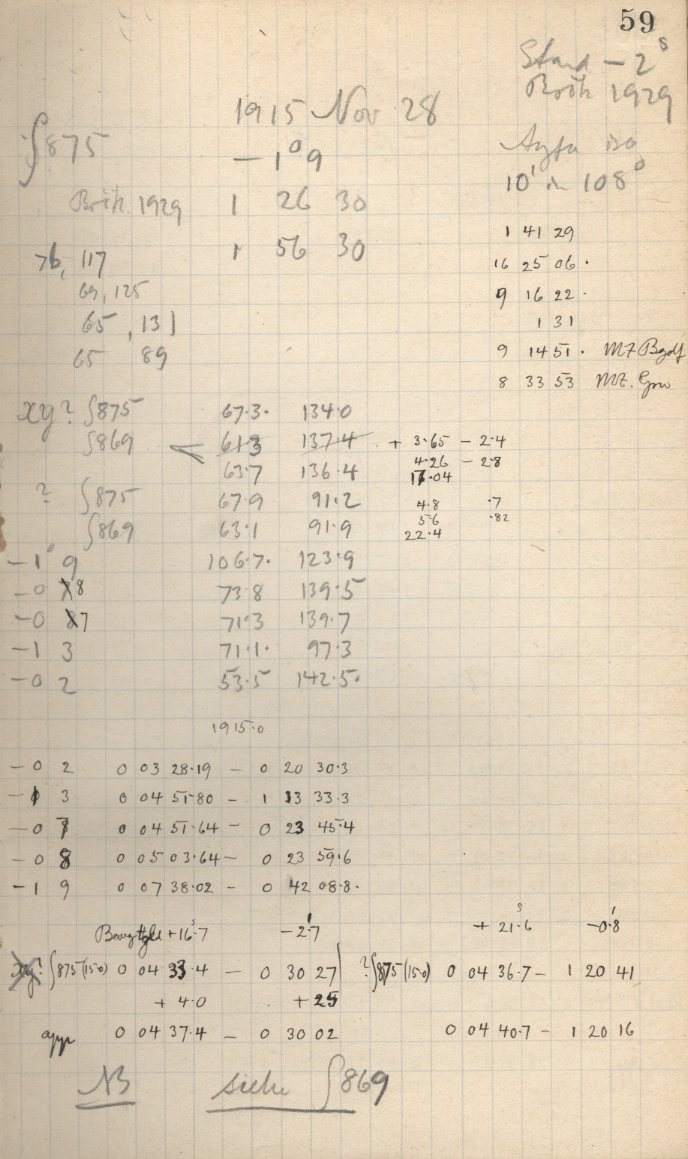 59
Stand - 2ˢ
1929
1915 Nov 28
∫875
- 1° 9
10' in 108°
1929 1 26 30
1 56 30
1 41 29
76, 117
16 25 06.
69, 125
9 16 22.
65, 131
1 31
65 89
9 14 51. MZ Bgdf
8 33 53 MZ. Grw
xy? ∫875 67.3. 134.0
∫869 61.3 137.4 + 3.65 - 2.4
63.7 136.4 4.26 - 2.8
17.04
? ∫875 67.9 91.2 4.8 .7
∫869 63.1 91.9 5.6 .82
22.4
- 1° 9 106.7. 123.9
- 0 8 73.8 139.5
- 0 7 71.3 139.7
- 1 3 71.1. 97.3
- 0 2 53.5 142.5.
1915.0
- 0 2 0 03 28.19 - 0 20 30.3
- 1 3 0 04 51.80 - 1 13 33.3
- 0 7 0 04 51.64 - 0 23 45.4
- 0 8 0 05 03.64 - 0 23 59.6
- 1 9 0 07 38.02 - 0 42 08.8.
+ 16ˢ.7 - 2'.7 + 21ˢ.6 - 0'.8
xy? ∫875 (15.0) 0 04 33.4 - 0 30 27 ? ∫875 (15.0) 0 04 36.7 - 1 20 41
+ 4.0 + 25
app 0 04 37.4 - 0 30 02 0 04 40.7 - 1 20 16
NB siehe ∫869